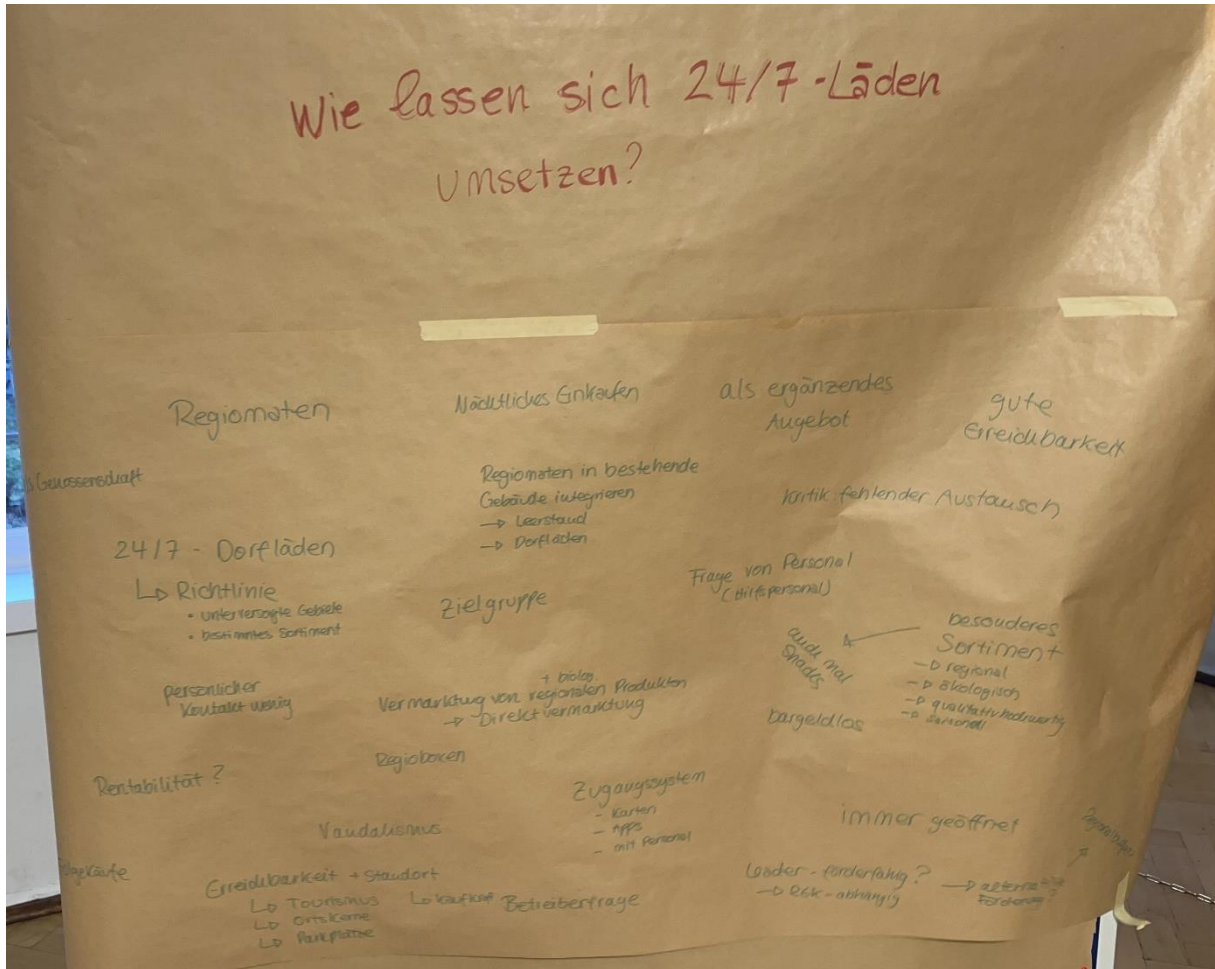 Wie lassen sich 24/7-Läden
umsetzen?
Regiomaten
Nächtliches Einkaufen
als ergänzendes
Angebot
gute
Erreichbarkeit
Genossenschaft
Regiomaten in bestehende
Gebäude integrieren
→ Leerstand
→ Dorfläden
Kritik fehlender Austausch
24/7 - Dorfläden
↳ Richtlinie
• unterversorgte Gebiete
• bestimmtes Sortiment
Zielgruppe
Frage von Personal
(Hilfspersonal)
besonderes
Sortiment
→ regional
→ ökologisch
→ qualitativ hochwertig
→ saisonal
auch mal
Snacks
persönlicher
Kontakt wenig
+ biolog.
Vermarktung von regionalen Produkten
→ Direktvermarktung
bargeldlos
Regioboxen
Rentabilität?
Zugangssystem
- Karten
- Apps
- mit Personal
Vandalismus
immer geöffnet
Folgekäufe
Erreichbarkeit + Standort
↳ Tourismus
↳ Ortskerne
↳ Parkplätze
↳ Kaufkraft
Betreiberfrage
Leader-förderfähig?
→ RSK-abhängig
→ alternative
Förderung?